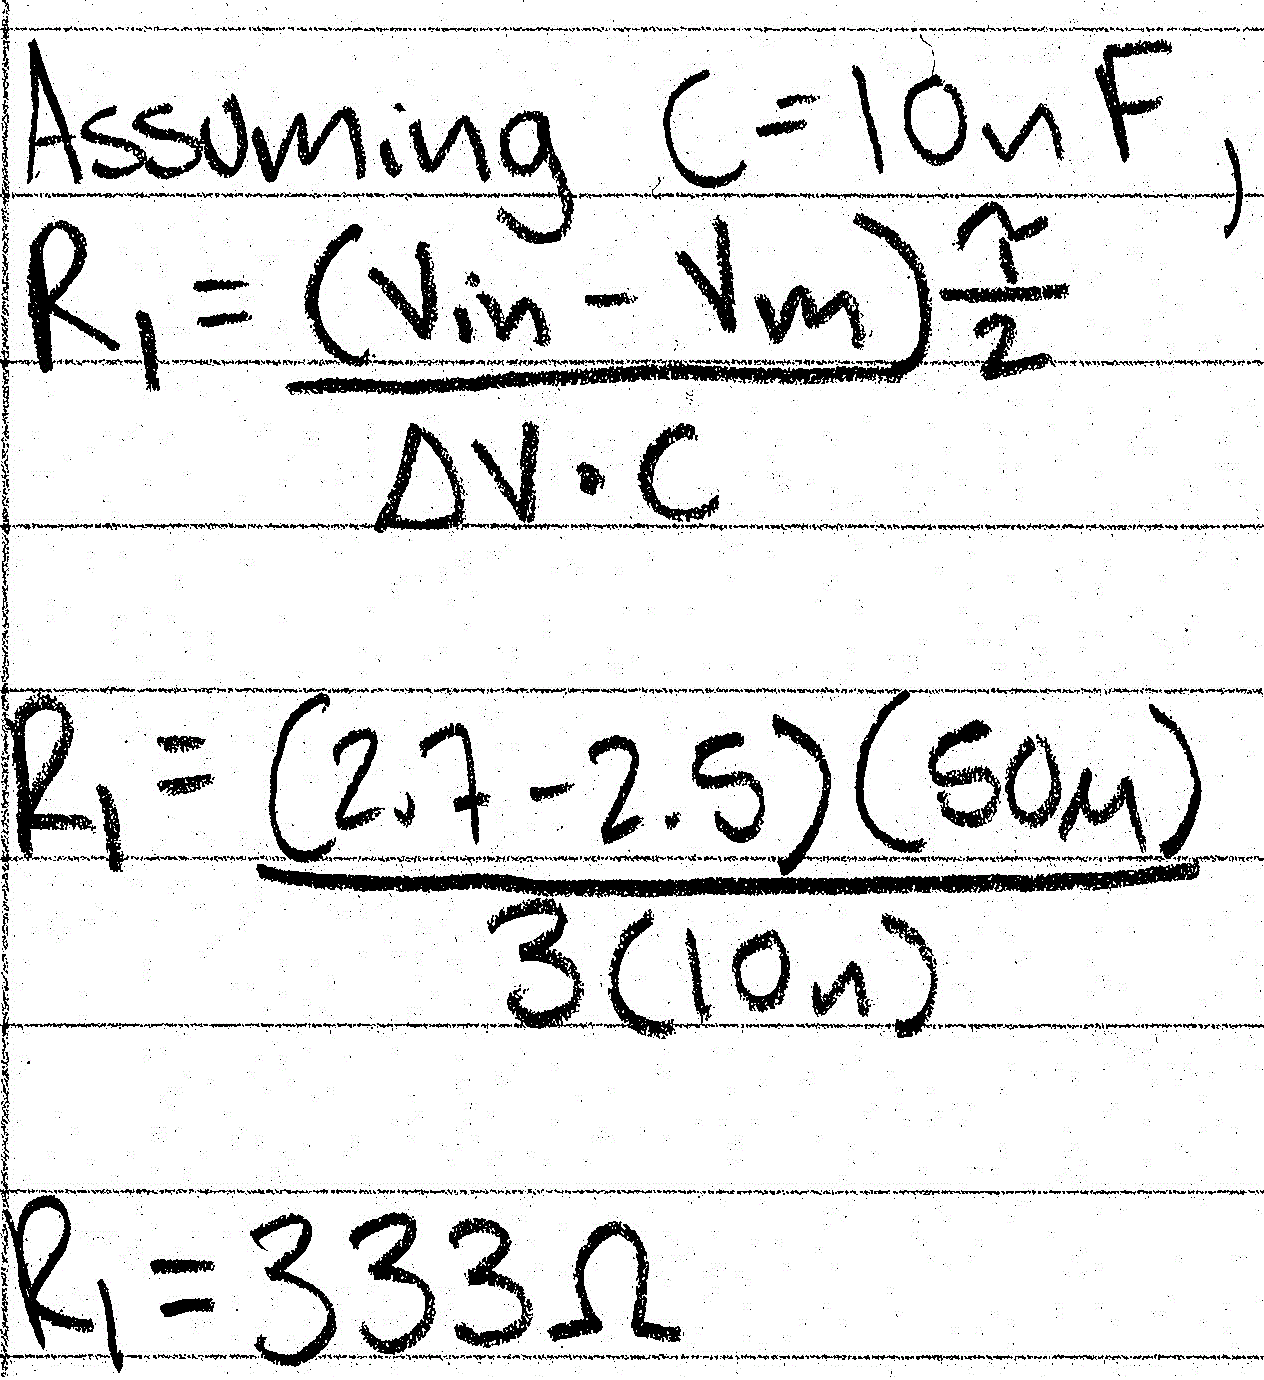 Assuming C = 10n F,
R1 = (Vin - Vm) T/2
ΔV · C
R1 = (2.7 - 2.5)(50μ)
3(10n)
R1 = 333Ω